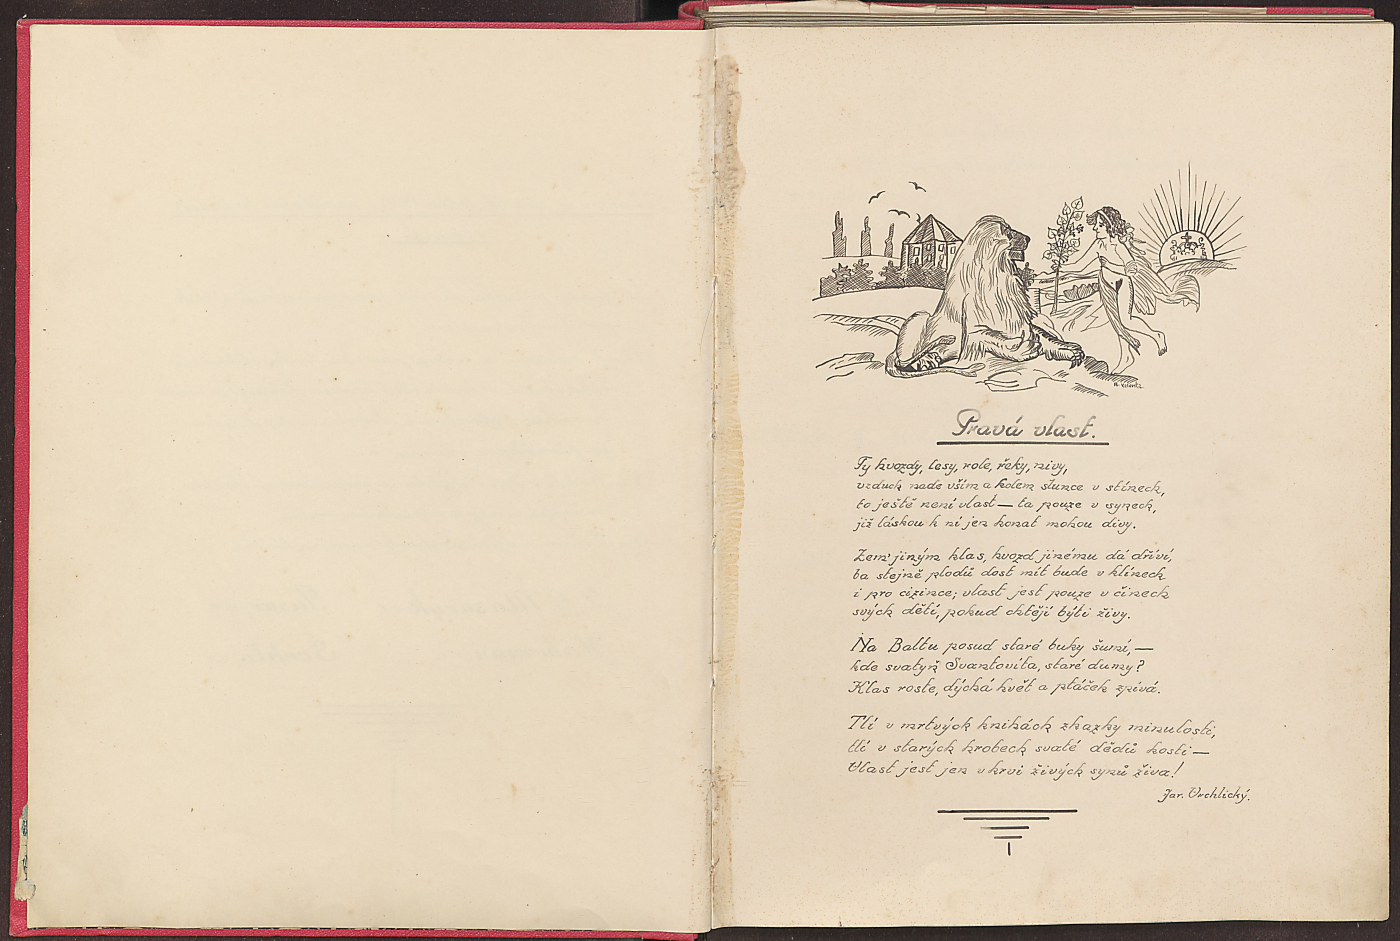 Pravá vlast.
Ty hvozdy, lesy, role, řeky, nivy,
vzduch nade vším a kolem slunce v stínech,
to ještě není vlast — ta pouze v synech,
již láskou k ní jen konat mohou divy.
Zem' jiným klas, hvozd jinému dá dříví,
ba stejně plodů dost mít bude v klínech
i pro cizince; vlast jest pouze v činech
svých dětí, pokud chtějí býti živy.
Na Baltu posud staré buky šumí, —
kde svatyň Svantovíta, staré dumy?
Klas roste, dýchá květ a ptáček zpívá.
Tlí v mrtvých knihách zkazky minulosti,
tlí v starých hrobech svaté dědů kosti —
Vlast jest jen v krvi živých synů živa!
Jar. Vrchlický.